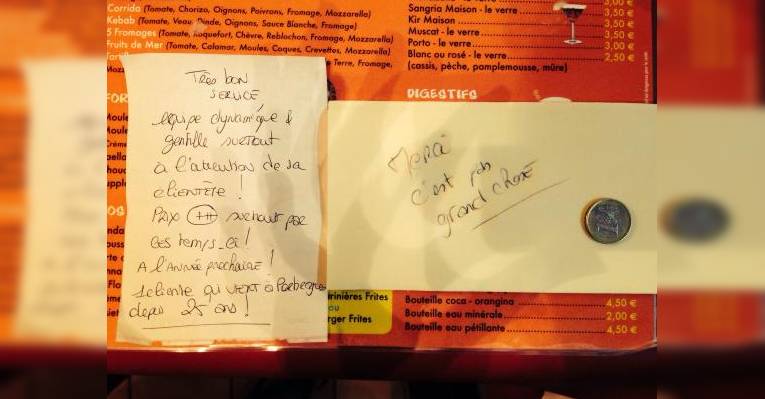 Corrida (Tomate, Chorizo, Oignons, Poivrons, Fromage, Mozzarella)
Kebab (Tomate, Veau, Dinde, Oignons, Sauce Blanche, Fromage)
5 Fromages (Tomate, Roquefort, Chèvre, Reblochon, Fromage, Mozzarella)
Fruits de Mer (Tomate, Calamar, Moules, Coques, Crevettes, Mozzarella)
e Terre, Fromage,
Mozz
3,00 €
Sangria Maison - le verre 3,50 €
Kir Maison 3,50 €
Muscat - le verre 3,50 €
Porto - le verre 3,00 €
Blanc ou rosé - le verre 2,50 €
(cassis, pêche, pamplemousse, mûre)
DIGESTIFS
Très bon
SERVICE
equipe dynamique &
gentille surtout
à l'attention de sa
clientèle !
Prix ++ surtout par
ces temps-ci !
A l'Année prochaine !
1 cliente qui vient à
depuis 25 ans !
Merci
c'est pas
grand chose
rinières Frites
ou
rger Frites
Bouteille coca - orangina 4,50 €
Bouteille eau minérale 2,00 €
Bouteille eau pétillante 4,50 €